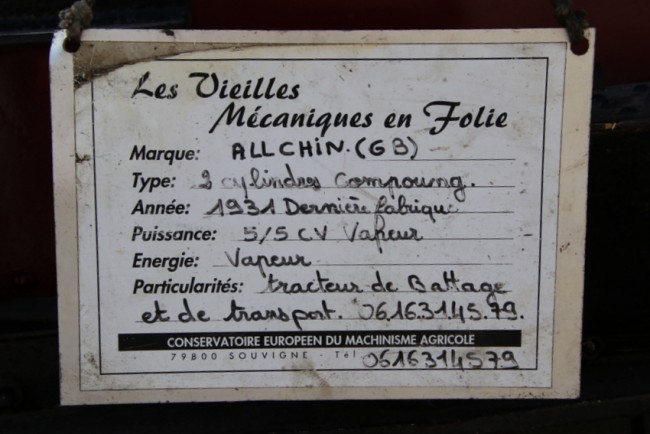 Les Vieilles
Mécaniques en Folie
Marque: ALLCHIN.(GB)
Type: 2 cylindres Compoung.
Année: 1931 Dernière fabrique
Puissance: 5/5 CV Vapeur
Energie: Vapeur
Particularités: tracteur de Battage
et de transport. 06.16.31.45.79.
CONSERVATOIRE EUROPEEN DU MACHINISME AGRICOLE
79800 SOUVIGNE - Tél 0616314579